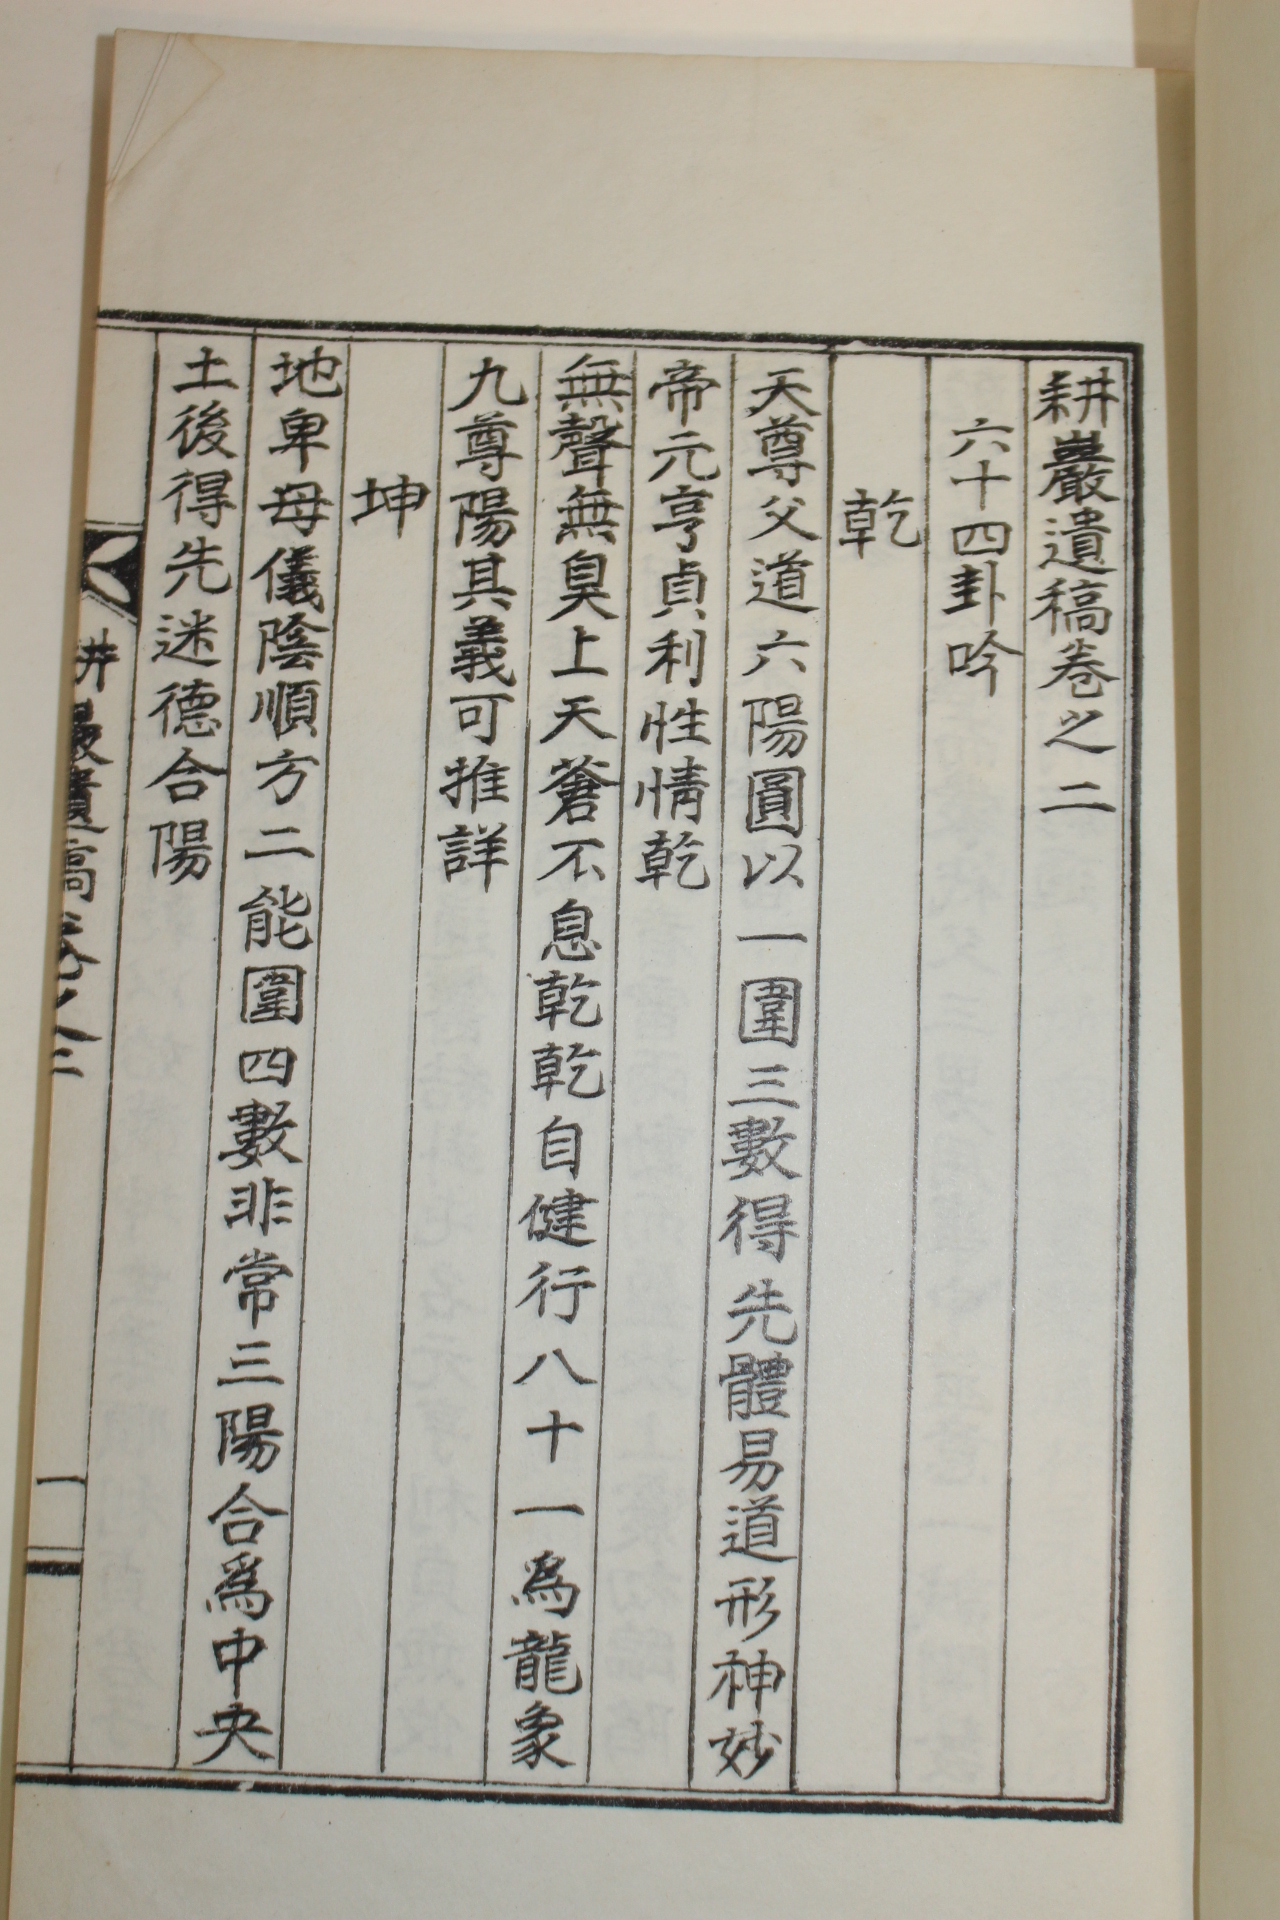 耕巖遺稿卷之二
六十四卦吟
乾
天尊父道六陽圓以一圍三數得先體易道形神妙
帝元亨貞利性情乾
無聲無臭上天蒼不息乾乾自健行八十一爲龍象
九尊陽其義可推詳
坤
地卑母儀陰順方二能圍四數非常三陽合爲中央
土後得先迷德合陽
耕巖遺稿卷之二
一